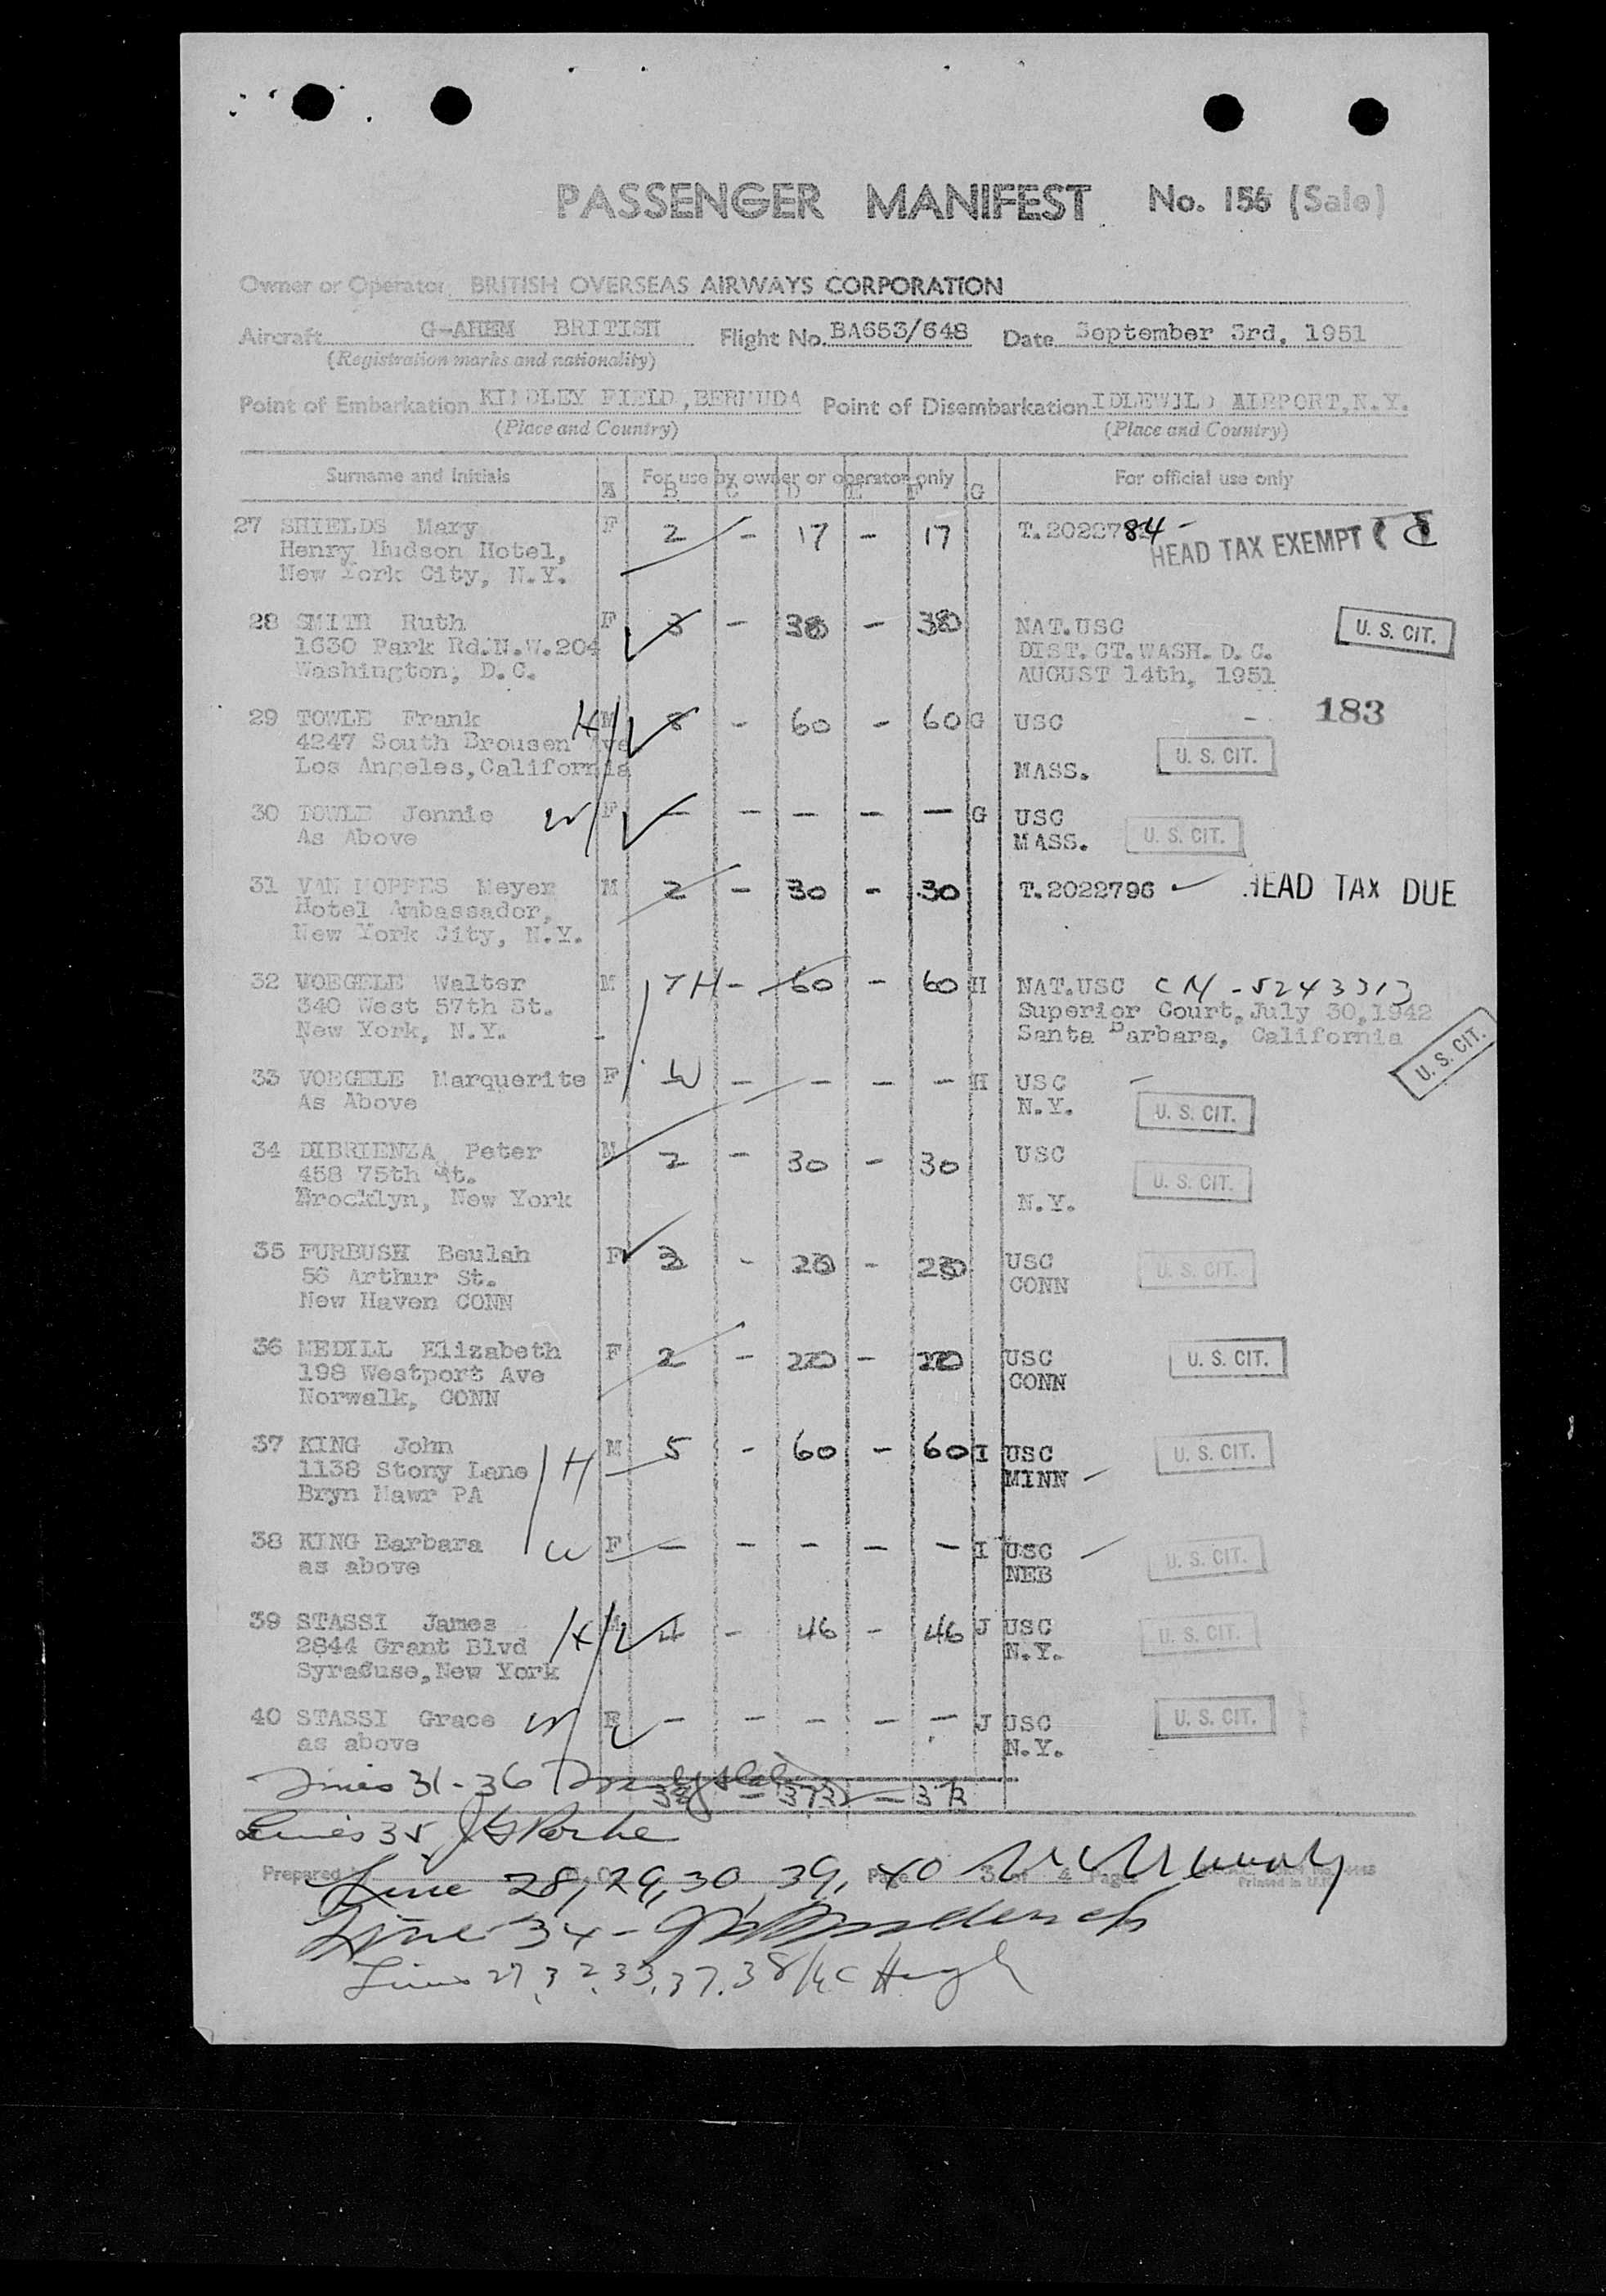 PASSENGER MANIFEST No. 156 (Sale)
Owner or Operator BRITISH OVERSEAS AIRWAYS CORPORATION
Aircraft G-AHEM BRITISH Flight No. BA653/648 Date September 3rd, 1951
(Registration marks and nationality)
Point of Embarkation KINDLEY FIELD, BERMUDA Point of Disembarkation IDLEWILD AIRPORT, N.Y.
(Place and Country) (Place and Country)
Surname and Initials For use by owner or operator only For official use only
A B C D E F G
27 SHIELDS Mary F 2 - 17 - 17 T.2022784 -
Henry Hudson Hotel, HEAD TAX EXEMPT
New York City, N.Y.
28 SMITH Ruth F 3 - 38 - 38 NAT.USC U. S. CIT.
1630 Park Rd.N.W.204 DIST. CT. WASH. D. C.
Washington, D.C. AUGUST 14th, 1951
29 TOWLE Frank H M 8 - 60 - 60 G USC - 183
4247 South Brousen Ave U. S. CIT.
Los Angeles, California MASS.
30 TOWLE Jennie W F - - - - - G USC
As Above MASS. U. S. CIT.
31 VAN MOPPES Meyer M 2 - 30 - 30 T.2022796 HEAD TAX DUE
Hotel Ambassador,
New York City, N.Y.
32 VOEGELE Walter M 7 H - 60 - 60 H NAT.USC CN - 5243313
340 West 57th St. Superior Court, July 30, 1942
New York, N.Y. - Santa Barbara, California
U. S. CIT.
33 VOEGELE Marquerite F W - - - - H USC
As Above N.Y. U. S. CIT.
34 DIBRIENZA Peter M 2 - 30 - 30 USC
458 75th St. U. S. CIT.
Brooklyn, New York N.Y.
35 FURBUSH Beulah F - - USC
56 Arthur St. CONN U. S. CIT.
New Haven CONN
36 MEDILL Elizabeth F 2 - - USC U. S. CIT.
198 Westport Ave CONN
Norwalk, CONN
37 KING John M 5 - 60 - 60 I USC U. S. CIT.
1138 Stony Lane H MINN
Bryn Mawr PA
38 KING Barbara W F - - - - - I USC
as above NEB U. S. CIT.
39 STASSI James H M 4 - 46 - 46 J USC U. S. CIT.
2844 Grant Blvd N.Y.
Syracuse, New York
40 STASSI Grace W F - - - - - J USC U. S. CIT.
as above N.Y.
Lines 31-36
Lines 35
Prepared Page 3 of 4 Pages
Printed in U.K.
Line 28, 29, 30, 39, 40
Line 34 -
Lines 27, 32, 33, 37, 38 McHugh